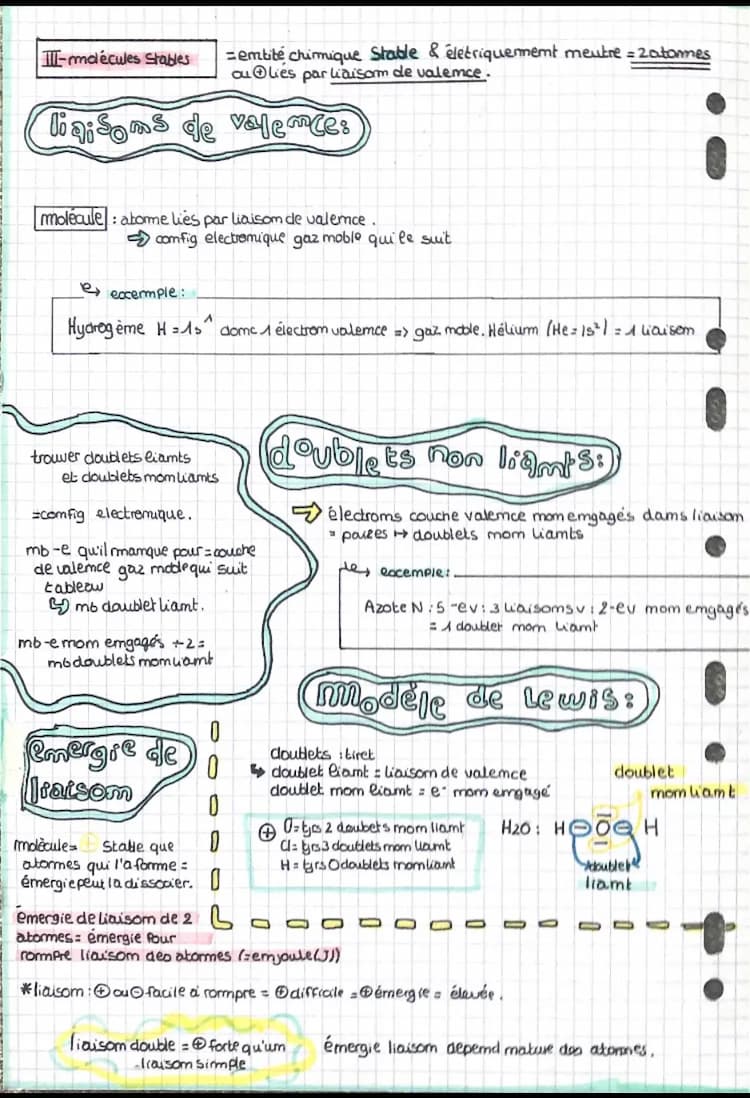 III-molécules Stables
=entité chimique Stable & életriquement neutre = 2 atomes
ou ⊕ liés par liaison de valence.
liaisons de valence:
molécule : atome liés par liaison de valence.
⇒ config electronique gaz noble qui le suit
↪ exemple:
Hydrogène H = 1s¹ donc 1 électron valence => gaz noble. Hélium (He = 1s²) = 1 liaison
trouver doublets liants
et doublets non liants
=config electronique.
nb -e qu'il manque pour = couche
de valence gaz noble qui suit
tableau
↪ nb doublet liant.
nb -e non engagés ÷ 2 =
nb doublets non liant
doublets non liants:
⇒ électrons couche valence non engagés dans liaison
= paires ↦ doublets non liants
↪ exemple:
Azote N : 5 -ev : 3 liaisons v : 2 -ev non engagés
= 1 doublet non liant
modèle de Lewis:
doublets : tiret
↪ doublet liant = liaison de valence
doublet non liant = e⁻ non engagé
⊕ O = tjrs 2 doubets non liant
Cl = tjrs 3 doublets non liant
H = tjrs 0 doublets non liant
doublet
non liant
H2O : H O H
doublet
liant
énergie de
liaison
molécule = + Stable que
atomes qui l'a forme =
énergie peut la dissocier.
énergie de liaison de 2
atomes = énergie pour
rompre liaison des atomes (=en joule (J))
*liaison : ⊕ ou ⊖ facile à rompre = ⊕ difficile = ⊕ énergie = élevée.
liaison double = ⊕ forte qu'un
liaison simple
énergie liaison depend nature des atomes.